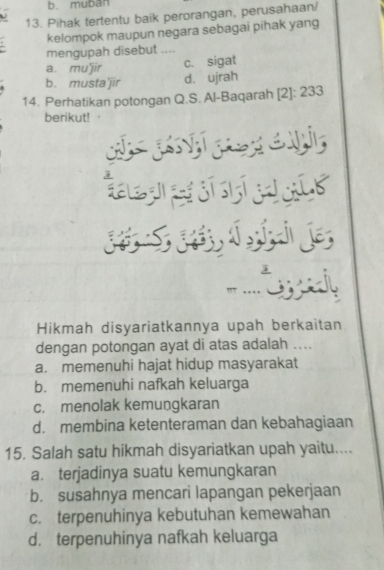 b. mubah
13. Pihak tertentu baik perorangan, perusahaan/
kelompok maupun negara sebagai pihak yang
mengupah disebut ....
a. mu'jir
c. sigat
b. musta'jir
d. ujrah
14. Perhatikan potongan Q.S. Al-Baqarah [2]: 233
berikut!
وَالْوٰلِدٰتُ يُرْضِعْنَ اَوْلَادَهُنَّ حَوْلَيْنِ
كَامِلَيْنِ لِمَنْ اَرَادَ اَنْ يُّتِمَّ الرَّضَاعَةَ ۗ
وَعَلَى الْمَوْلُوْدِ لَهٗ رِزْقُهُنَّ وَكِسْوَتُهُنَّ
بِالْمَعْرُوْفِ ۗ .... ---
Hikmah disyariatkannya upah berkaitan
dengan potongan ayat di atas adalah ....
a. memenuhi hajat hidup masyarakat
b. memenuhi nafkah keluarga
c. menolak kemungkaran
d. membina ketenteraman dan kebahagiaan
15. Salah satu hikmah disyariatkan upah yaitu....
a. terjadinya suatu kemungkaran
b. susahnya mencari lapangan pekerjaan
c. terpenuhinya kebutuhan kemewahan
d. terpenuhinya nafkah keluarga